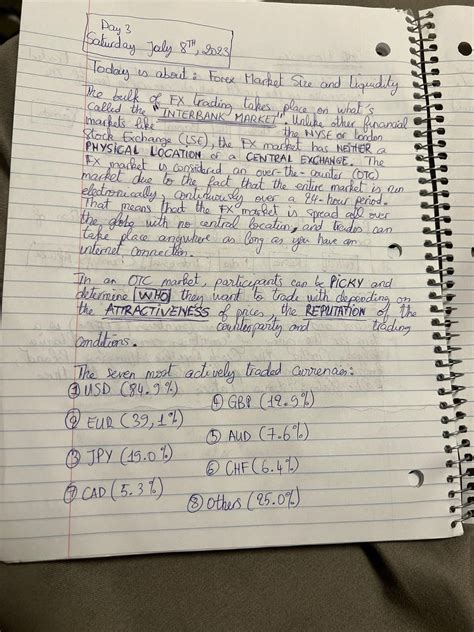 Day 3
Saturday July 8TH, 2023
Today is about: Forex Market Size and Liquidity
The bulk of FX trading takes place on what's
called the "INTERBANK MARKET". Unlike other financial
markets like the NYSE or London
Stock Exchange (LSE), the FX market has NEITHER a
PHYSICAL LOCATION or a CENTRAL EXCHANGE. The
FX market is considered an over-the-counter (OTC)
market due to the fact that the entire market is run
electronically, continuously over a 24-hour period.
That means that the FX market is spread all over
the globe with no central location, and trades can
take place anywhere as long as you have an
internet connection.
In an OTC market, participants can be PICKY and
determine WHO they want to trade with depending on
the ATTRACTIVENESS of prices, the REPUTATION of the
counterparty and trading
conditions.
The seven most actively traded currencies:
① USD (84.9%)
② EUR (39,1%)
③ JPY (19.0%)
④ GBP (12.9%)
⑤ AUD (7.6%)
⑥ CHF (6.4%)
⑦ CAD (5.3%)
⑧ Others (25.0%)